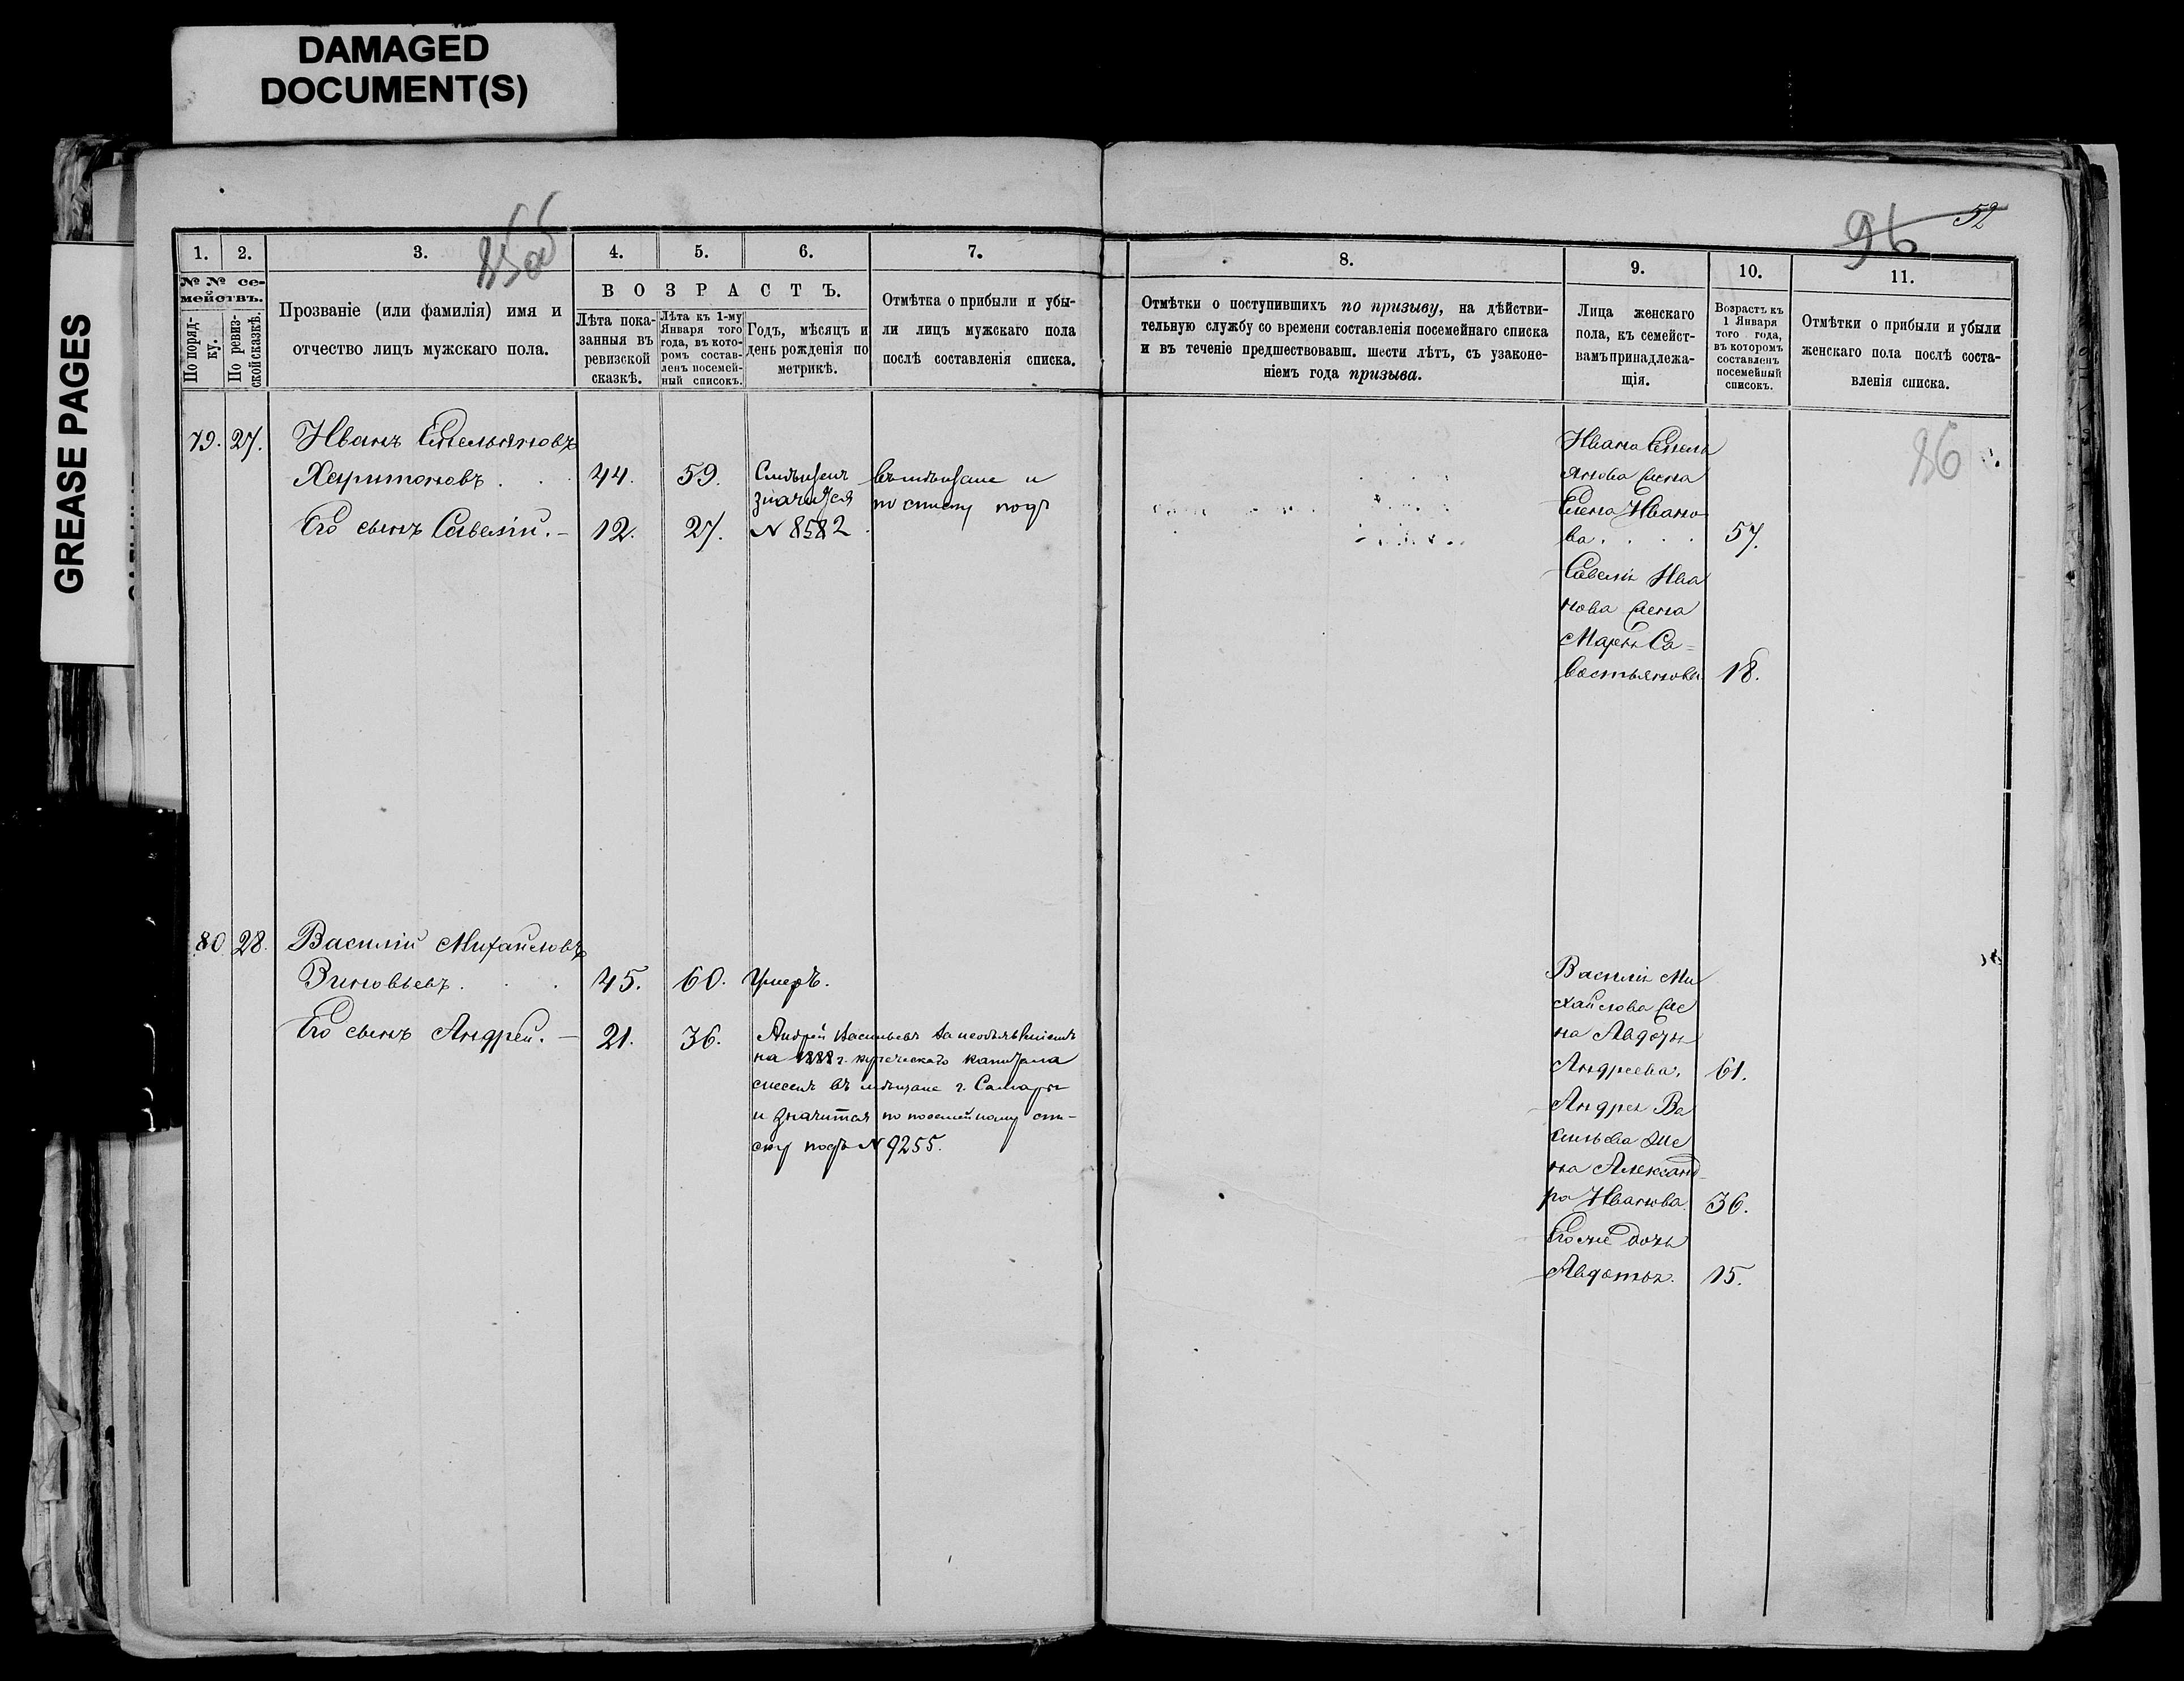 DAMAGED
DOCUMENT(S)
GREASE PAGES
52
96
85об
86
1.
2.
3.
4.
5.
6.
7.
№ № се-
мействъ.
По поряд-
ку.
По ревиз-
ской сказкѣ.
Прозваніе (или фамилія) имя и
отчество лицъ мужскаго пола.
ВОЗРАСТЪ.
Лѣта пока-
занныя въ
ревизской
сказкѣ.
Лѣта къ 1-му
Января того
года, въ кото-
ромъ состав-
ленъ посемей-
ный списокъ.
Годъ, мѣсяцъ и
день рожденія по
метрикѣ.
Отмѣтка о прибыли и убы-
ли лицъ мужскаго пола
послѣ составленія списка.
8.
9.
10.
11.
Отмѣтки о поступившихъ по призыву, на дѣйстви-
тельную службу со времени составленія посемейнаго списка
и въ теченіе предшествовавш. шести лѣтъ, съ узаконе-
ніемъ года призыва.
Лица женскаго
пола, къ семейст-
вамъ принадлежа-
щія.
Возрастъ къ
1 Января
того года,
въ которомъ
составленъ
посемейный
списокъ.
Отмѣтки о прибыли и убыли
женскаго пола послѣ соста-
вленія списка.
79. 27. Иванъ Емельяновъ
Харитоновъ . . . 44. 59.
значится по списку подъ
Его сынъ Савелій. — 12. 27. № 8582
Ивана Емель
янова жена
Елена Ивано
ва . . . . 57.
Савелія Ива
нова жена
Марья Са=
вастьянова 18.
80 28. Василій Михайловъ
Зиновьевъ . . . 45. 60. Умеръ.
Его сынъ Андрей. — 21. 36. Андрей Васильевъ за необъявленіемъ
на 1888 г. купеческаго капитала
снесенъ въ мѣщане г. Самары
и значится по посемейному спи-
ску подъ № 9255.
Василія Ми
хайлова же
на Авдотья
Андреева. 61.
Андрея Ва
сильева же
на Александ
ра Иванова. 36.
Его же дочь
Авдотья. 15.